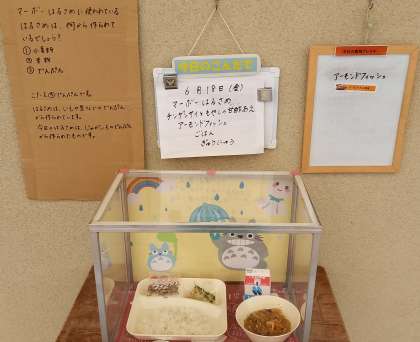 マーボーはるさめに使われている
はるさめは、何から作られて
いるでしょう?
①小麦粉
②米粉
③でんぷん
こたえ③でんぷんです。
はるさめは、いもや豆などのでんぷん
から作られています。
今日のはるさめは、じゃがいものでんぷん
から作ったものです。
今日のこんだて
6月18日(金)
マーボーはるさめ
チンゲンサイともやしの甘酢あえ
アーモンドフィッシュ
ごはん
ぎゅうにゅう
アーモンドフィッシュ